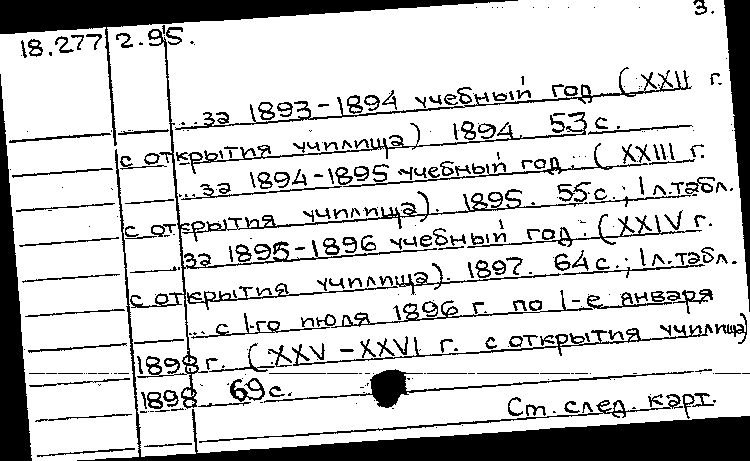 3.
18.277 2.95.
...за 1893-1894 учебный год. (XXII г.
с открытия училища) 1894. 53 с.
...за 1894-1895 учебный год. (XXIII г.
с открытия училища). 1895. 55 с.; 1 л. табл.
...за 1895-1896 учебный год. (XXIV г.
с открытия училища). 1897. 64 с.; 1 л. табл.
... с 1-го июля 1896 г. по 1-е января
1898 г. (XXV-XXVI г. с открытия училища)
1898. 69 с.
См. след. карт.